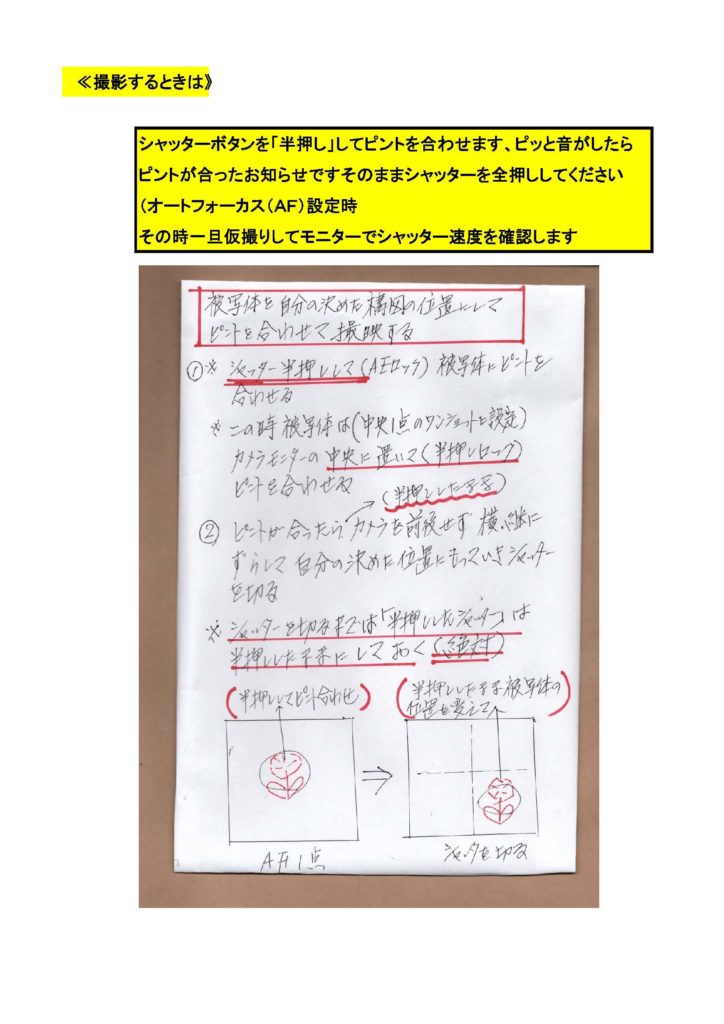 ≪撮影するときは》
シャッターボタンを「半押し」してピントを合わせます、ピッと音がしたら
ピントが合ったお知らせですそのままシャッターを全押ししてください
（オートフォーカス（AF）設定時
その時一旦仮撮りしてモニターでシャッター速度を確認します
被写体を自分の決めた構図の位置にして
ピントを合わせて撮映する
①※ シャッター半押しして(AFロック) 被写体にピントを
合わせる
※ この時被写体は(中央1点のワンショットに設定)
カメラモニターの中央に置いて(半押しロック)
ピントを合わせる
(半押ししたまま)
② ピントが合ったらカメラを前後せず 横、縦に
ずらして自分の決めた位置にもっていきシャッター
を切る
※ シャッターを切るまでは「半押ししたシャッター」は
半押ししたままにしておく(絶対)
(半押ししてピント合わせ)
(半押ししたまま被写体の
位置を変えて)
⇒
AF1点
シャッタを切る